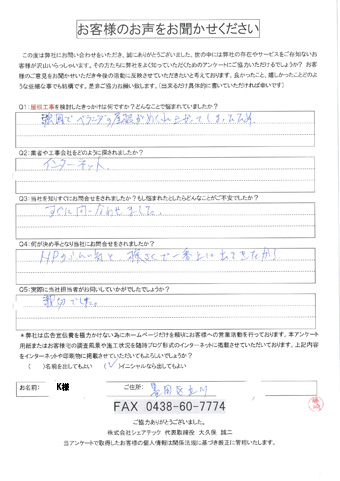 お客様のお声をお聞かせください
この度は弊社にお問い合わせをいただき、誠にありがとうございました。世の中には弊社の存在やサービスをご存知ないお
客様が沢山いらっしゃいます。その方たちに弊社をよく知っていただくためのアンケートにご協力いただけるでしょうか?お客
様のご意見をお聞かせいただき今後の活動に反映させていただきたいと考えております。良かったこと、嬉しかったことどのよ
うな些細な事でも結構です。是非ご協力お願い致します。(出来るだけ具体的に書いていただければ幸いです)
Q1:屋根工事を検討したきっかけは何ですか?どんなことで悩まれていましたか?
強風でベランダの屋根がめくれ上がってしまったため
Q2:業者や工事会社をどのように探されましたか?
インターネット
Q3:当社を知りすぐにお問合せをされましたか?もし悩まれたとしたらどんなことがご不安でしたか?
すぐに問い合わせました。
Q4:何が決め手となり当社にお問合せをされましたか?
HPのふんい気と、検さくで一番上に出てきたから
Q5:実際に当社担当者がお伺いしていかがでしたでしょうか?
親切でした。
*弊社は広告宣伝費を極力かけない為にホームページだけを頼りにお客様への営業活動を行っております。本アンケート
用紙またはお客様宅の調査風景や施工状況を随時ブログ形式のインターネットに掲載させていただいております。上記内容
をインターネットや印刷物に掲載させていただいてもよろしいでしょうか?
( )名前を出してもよい (✓)イニシャルなら出してもよい
お名前: K様 ご住所: 墨田区立川
FAX 0438-60-7774
ご協力ありがとうございました。
株式会社シェアテック 代表取締役 大久保 誠二
当アンケートで取得したお客様の個人情報は関係法規に基づき厳正に管理いたします。